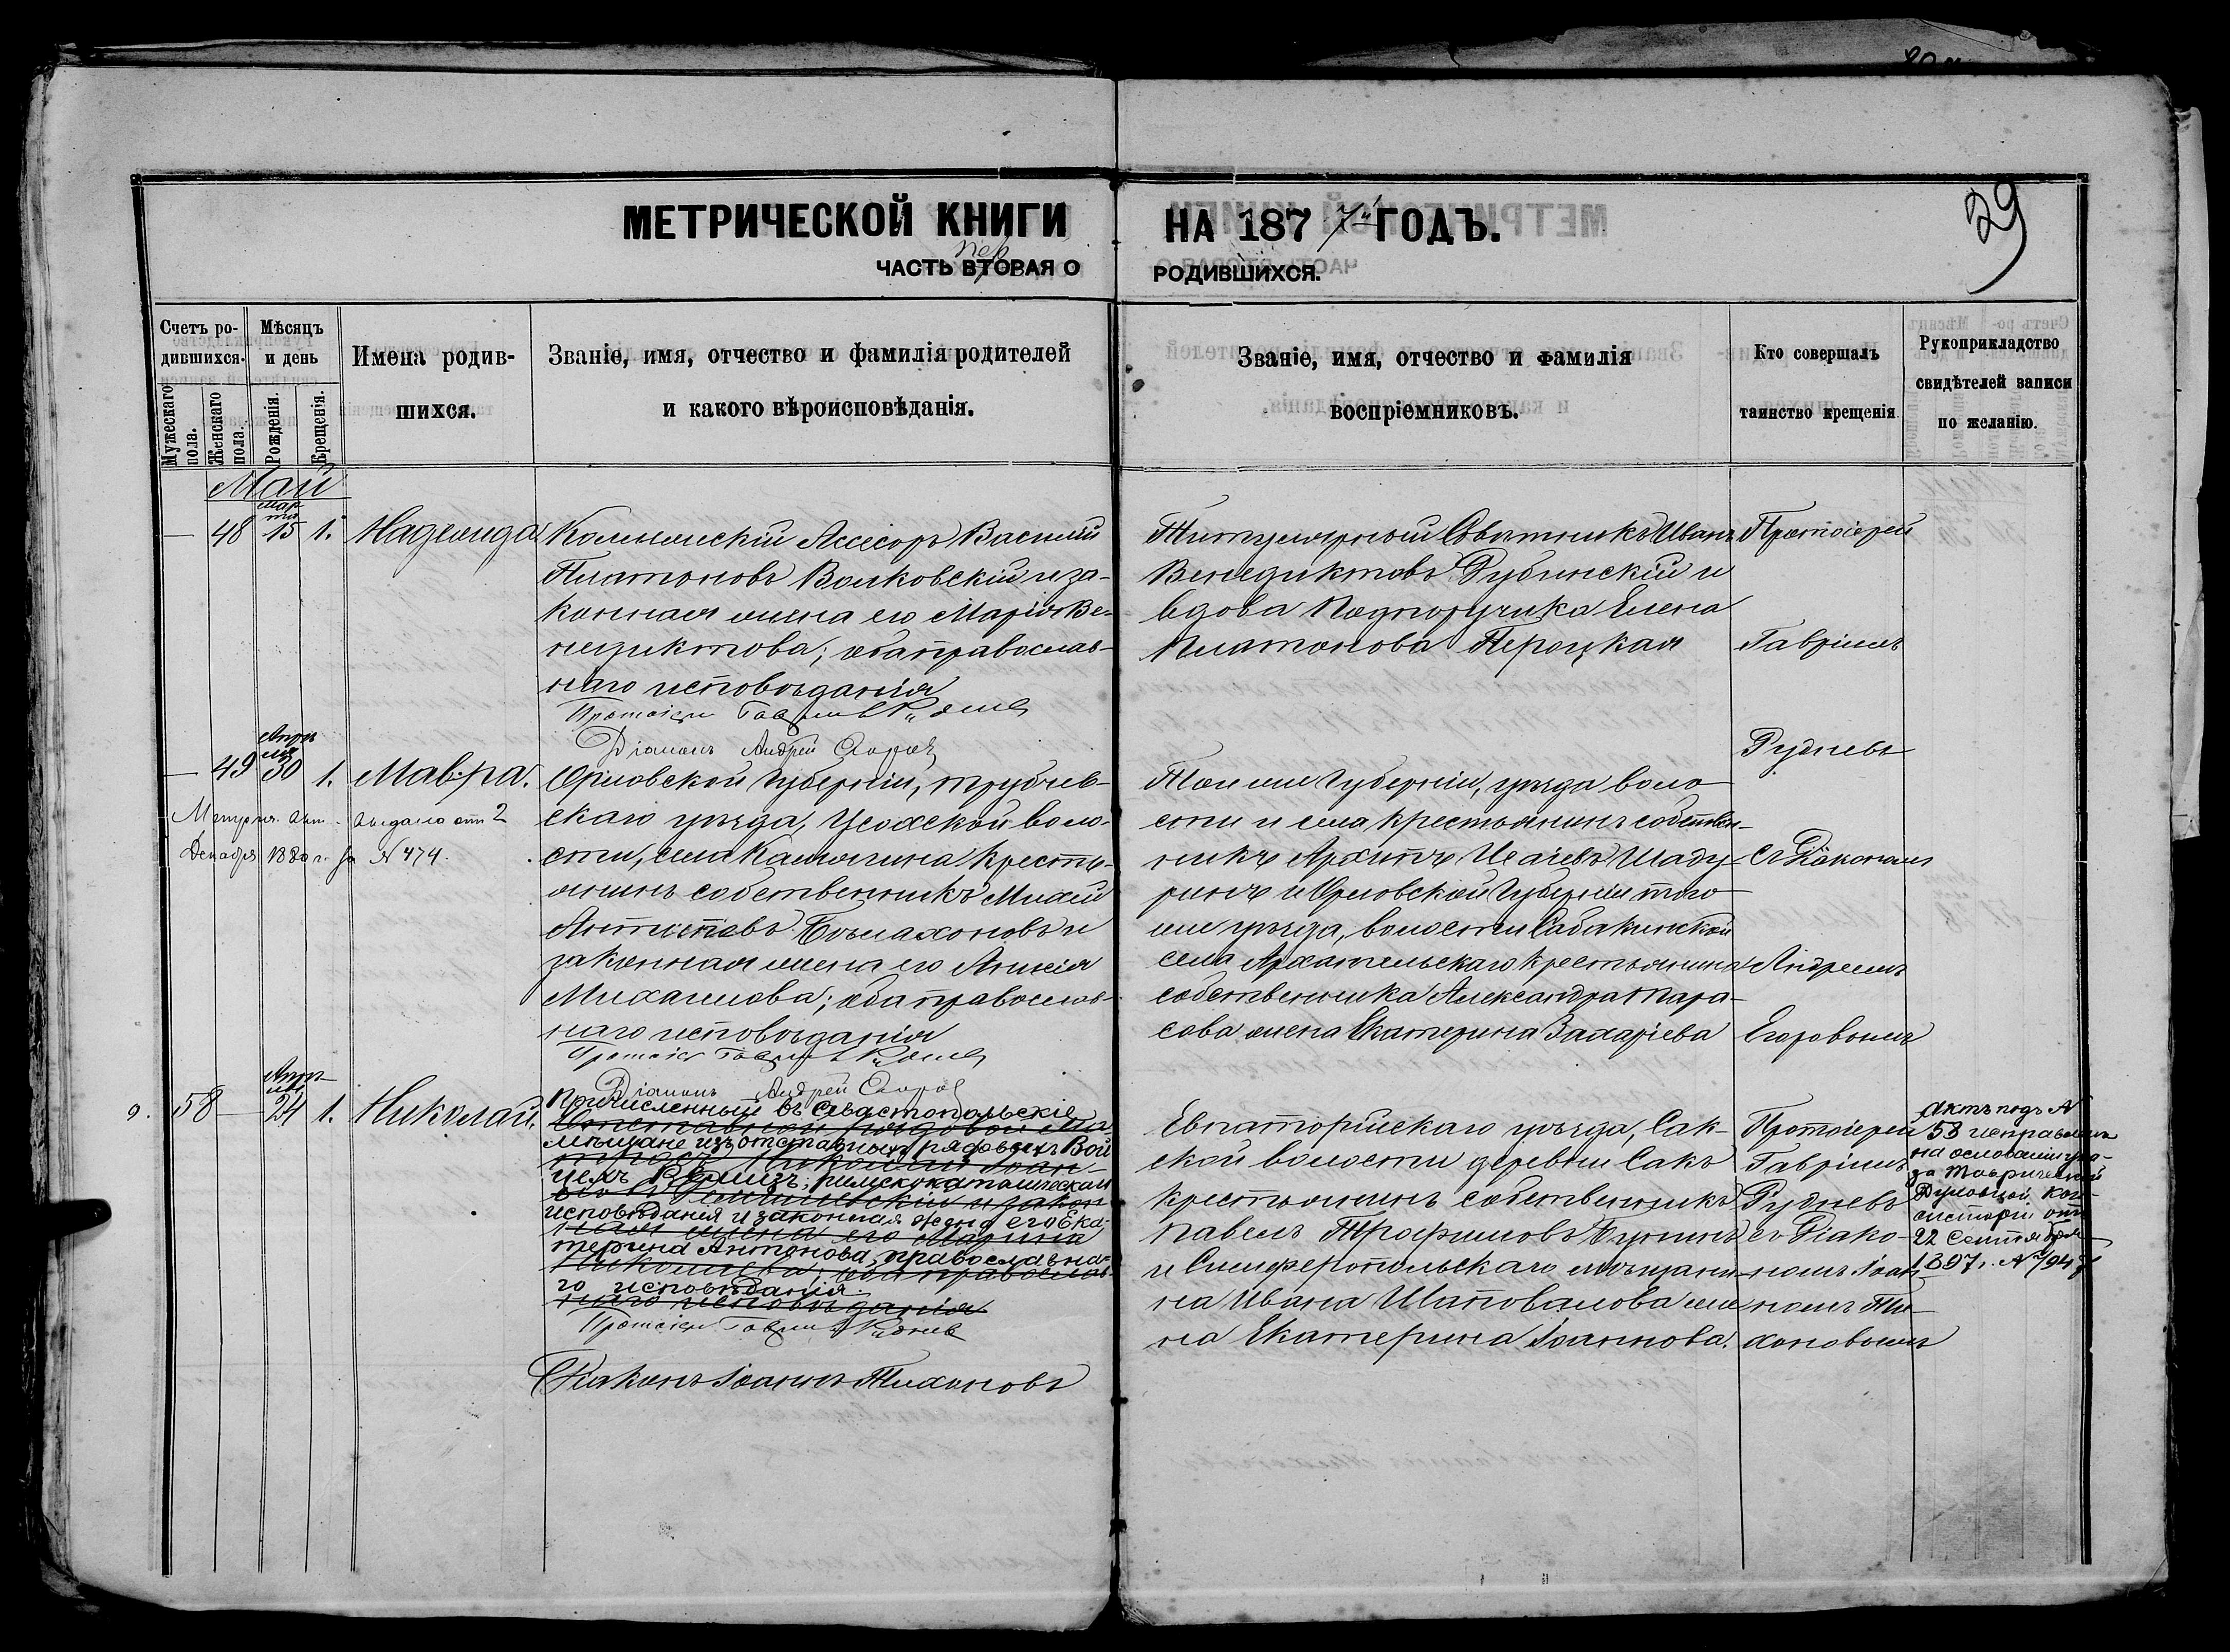 МЕТРИЧЕСКОЙ КНИГИ НА 1877й ГОДЪ.
29
пер
ЧАСТЬ ВТОРАЯ О РОДИВШИХСЯ.
Счетъ родившихся.
Мужескаго пола.
Женскаго пола.
Мѣсяцъ и день
Рожденія.
Крещенія.
Имена родив-
шихся.
Званіе, имя, отчество и фамилія родителей
и какого вѣроисповѣданія.
Званіе, имя, отчество и фамилія
воспріемниковъ.
Кто совершалъ
таинство крещенія
Рукоприкладство
свидѣтелей записи
по желанію.
Май
— 48 марта 15 1. Надежда
Коллежскій Ассесоръ Василій
Платоновъ Волковскій и за-
конная жена его Марія Ве-
недиктова; оба православ-
наго исповѣданія
Протоіерей Гавріилъ Рудневъ
Діаконъ Андрей Егоровъ
Титулярный Совѣтникъ Иванъ
Венедиктовъ Рубинскій и
вдова Подпоручика Елена
Платонова Пероцкая
Протоіерей
Гавріилъ
Рудневъ
— 49 Апрѣля 30 1. Мавра.
Метрич. акт. выдано отъ 2
Декабря 1880 г. за № 474.
Орловской Губерніи, трубчев-
скаго уѣзда, Усохской воло-
сти, села Калачина Кресть-
янинъ собственникъ Михей
Антиповъ Бѣлахоновъ и
законная жена его Анисія
Михаилова; оба православ-
наго исповѣданія
Протоіерей Гавріилъ Рудневъ
Діаконъ Андрей Егоровъ
Той же Губерніи, уѣзда воло-
сти и села Крестьянинъ собствен-
никъ Архипъ Исаіевъ Шаду-
ринъ и Орловской Губерніи того
же уѣзда, волости Сабакинской
села Архангельскаго Крестьянина
собственника Александра Тара-
сова жена Екатерина Захаріева
съ Діакономъ
Андреемъ
Егоровымъ
58 — Апрѣля 24 1. Николай.
Причисленный въ Севастопольскіе
мѣщане изъ отставныхъ рядовыхъ Вой
цехъ Ремизъ, римскокатолическаго
исповѣданія и законная жена его Ека-
терина Антонова, православна-
го исповѣданія
наго исповѣданія
Протоіерей Гавріилъ Рудневъ
Діаконъ Іоаннъ Тихоновъ
Евпаторійскаго уѣзда, Сак-
ской волости деревни Сакъ
крестьянинъ собственникъ
Павелъ Трофимовъ
и Симферопольскаго мѣщани-
на Ивана Шаповалова же-
на Екатерина Іоаннова.
Протоіерей
Гавріилъ
Рудневъ
съ Діако-
номъ Іоан-
номъ Ти-
хоновымъ
Актъ подъ №
58 исправленъ
на основаніи ука-
за Таврической
Духовной Кон-
систоріи отъ
22 Сентября
1897 г. №